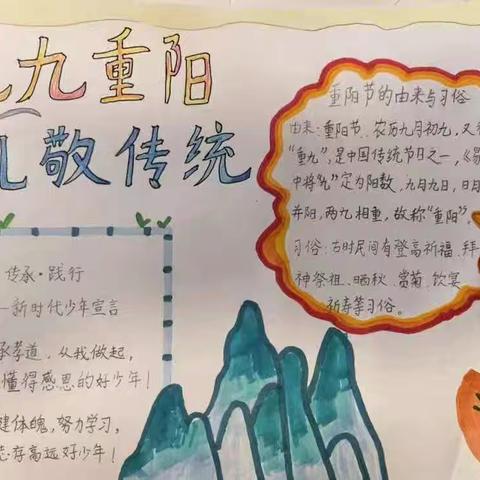 九重阳
敬传统
重阳节的由来与习俗
由来：重阳节、农历九月初九，又
"重九"，是中国传统节日之一，《易
中将"九"定为阳数，九月九日，日月
并阳，两九相重，故称"重阳"。
习俗：古时民间有登高祈福、拜
神祭祖、晒秋、赏菊、饮宴
祈寿等习俗。
传承·践行
新时代少年宣言
承孝道，从我做起，
懂得感恩的好少年！
健体魄，努力学习，
志存高远好少年！